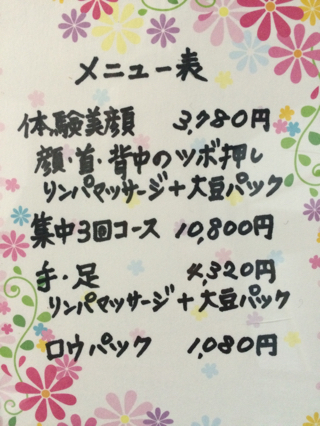 メニュー表
体験美顔 3,780円
顔・首・背中のツボ押し
リンパマッサージ+大豆パック
集中3回コース 10,800円
手・足 4,320円
リンパマッサージ+大豆パック
ロウパック 1,080円